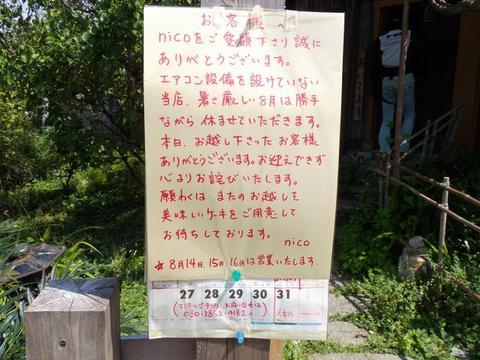 お客様へ
nicoをご愛顧下さり誠に
ありがとうございます。
エアコン設備を設けていない
当店、暑さ厳しい8月は勝手
ながら休ませていただきます。
本日、お越し下さったお客様
ありがとうございます。お迎えできず
心よりお詫びいたします。
願わくは またのお越しを
美味しいケーキをご用意して
お待ちしております。
nico
★8月14日、15日、16日は営業いたします.
27 28 29 30 31